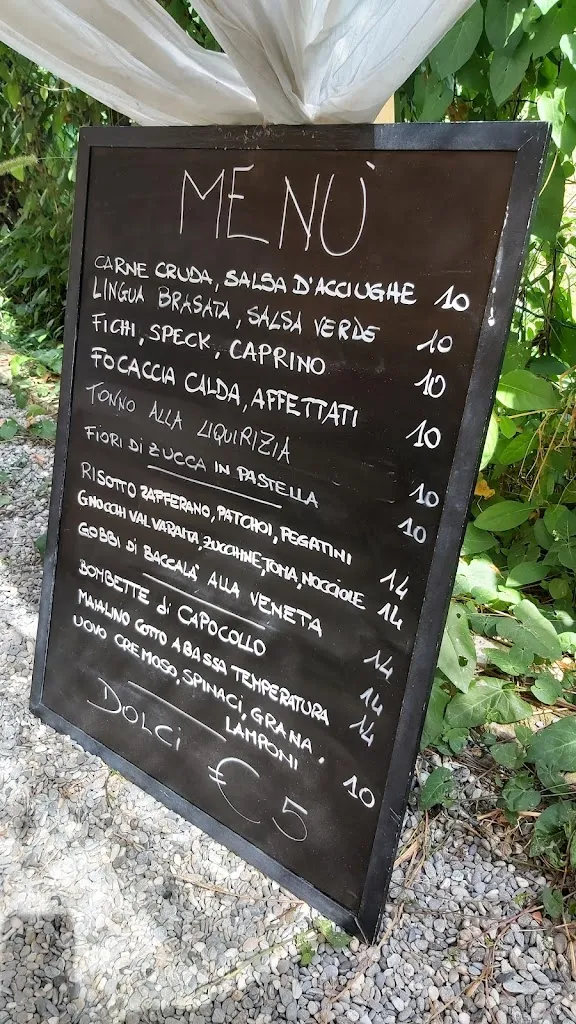 MENÙ
CARNE CRUDA, SALSA D'ACCIUGHE 10
LINGUA BRASATA, SALSA VERDE 10
FICHI, SPECK, CAPRINO 10
FOCACCIA CALDA, AFFETTATI 10
TONNO ALLA LIQUIRIZIA 10
FIORI DI ZUCCA IN PASTELLA 10
RISOTTO ZAFFERANO, PATCHOI, FEGATINI 14
GNOCCHI VAL VARAITA, ZUCCHINE, TOMA, NOCCIOLE 14
GOBBI DI BACCALÀ ALLA VENETA 14
BOMBETTE di CAPOCOLLO 14
MAIALINO COTTO A BASSA TEMPERATURA 14
UOVO CREMOSO, SPINACI, GRANA,
LAMPONI 10
DOLCI € 5